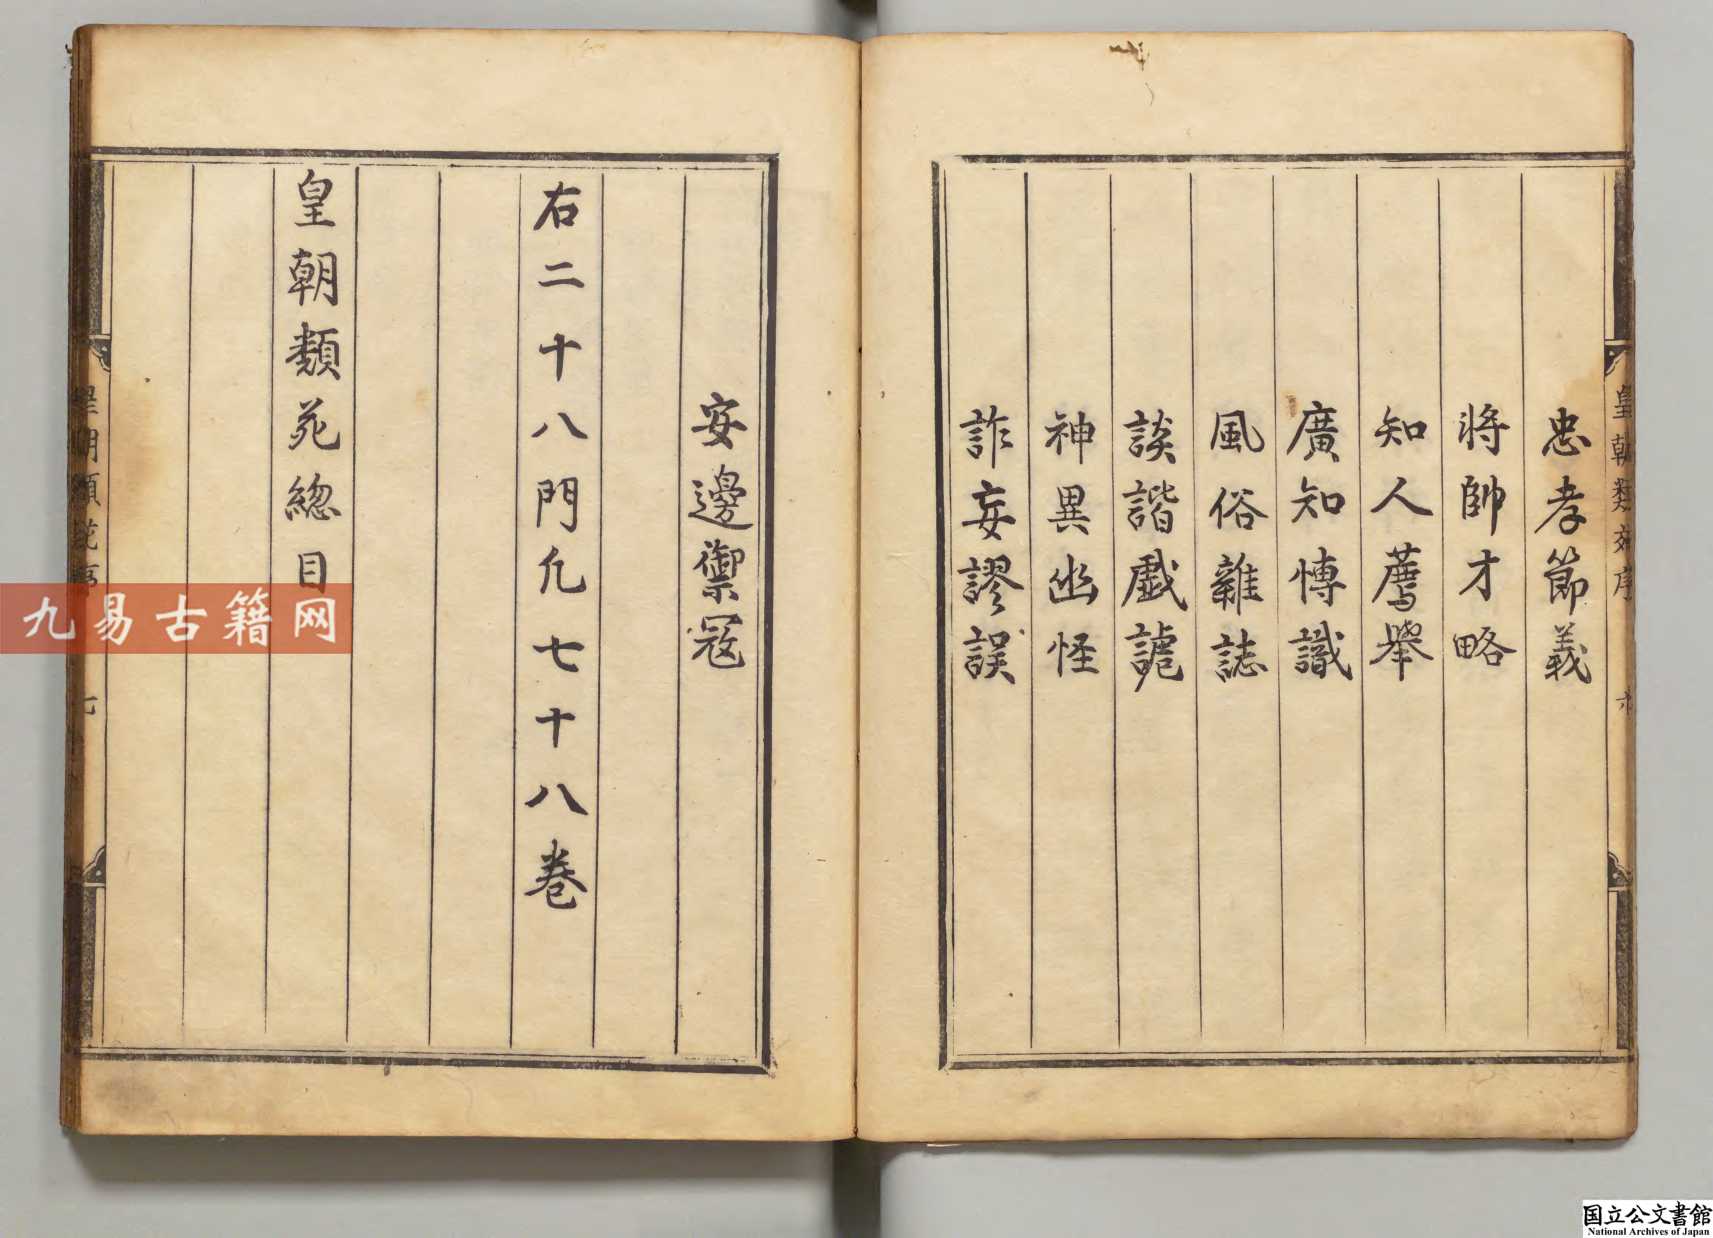 忠孝節義
將帥才略
知人薦舉
廣知博識
風俗雜誌
談諧戲謔
神異幽怪
詐妄謬誤
安邊禦寇
右二十八門凢七十八卷
皇朝類苑總目
皇朝類苑序
七
九易古籍网
国立公文書館
National Archives of Japan